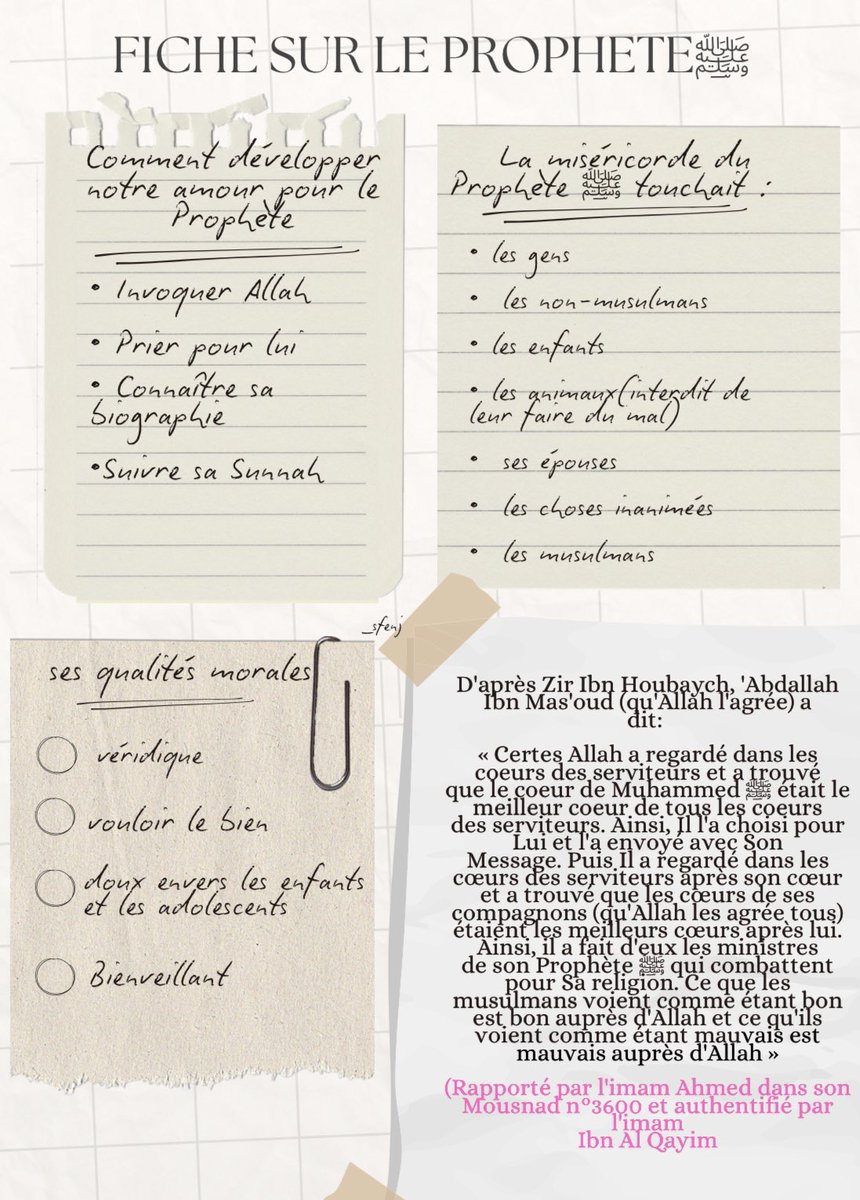 FICHE SUR LE PROPHETEﷺ
Comment développer
notre amour pour le
Prophète
• Invoquer Allah
• Prier pour lui
• Connaître sa
biographie
•Suivre sa Sunnah
La miséricorde du
Prophète ﷺ touchait :
• les gens
• les non-musulmans
• les enfants
• les animaux(interdit de
leur faire du mal)
• ses épouses
• les choses inanimées
• les musulmans
_sfenj
ses qualités morales
véridique
vouloir le bien
doux envers les enfants
et les adolescents
Bienveillant
D'après Zir Ibn Houbaych, 'Abdallah
Ibn Mas'oud (qu'Allah l'agrée) a
dit:
« Certes Allah a regardé dans les
coeurs des serviteurs et a trouvé
que le coeur de Muhammed ﷺ était le
meilleur coeur de tous les coeurs
des serviteurs. Ainsi, Il l'a choisi pour
Lui et l'a envoyé avec Son
Message. Puis Il a regardé dans les
cœurs des serviteurs après son cœur
et a trouvé que les cœurs de ses
compagnons (qu'Allah les agrée tous)
étaient les meilleurs cœurs après lui.
Ainsi, il a fait d'eux les ministres
de son Prophète ﷺ qui combattent
pour Sa religion. Ce que les
musulmans voient comme étant bon
est bon auprès d'Allah et ce qu'ils
voient comme étant mauvais est
mauvais auprès d'Allah »
(Rapporté par l'imam Ahmed dans son
Mousnad n°3600 et authentifié par
l'imam
Ibn Al Qayim